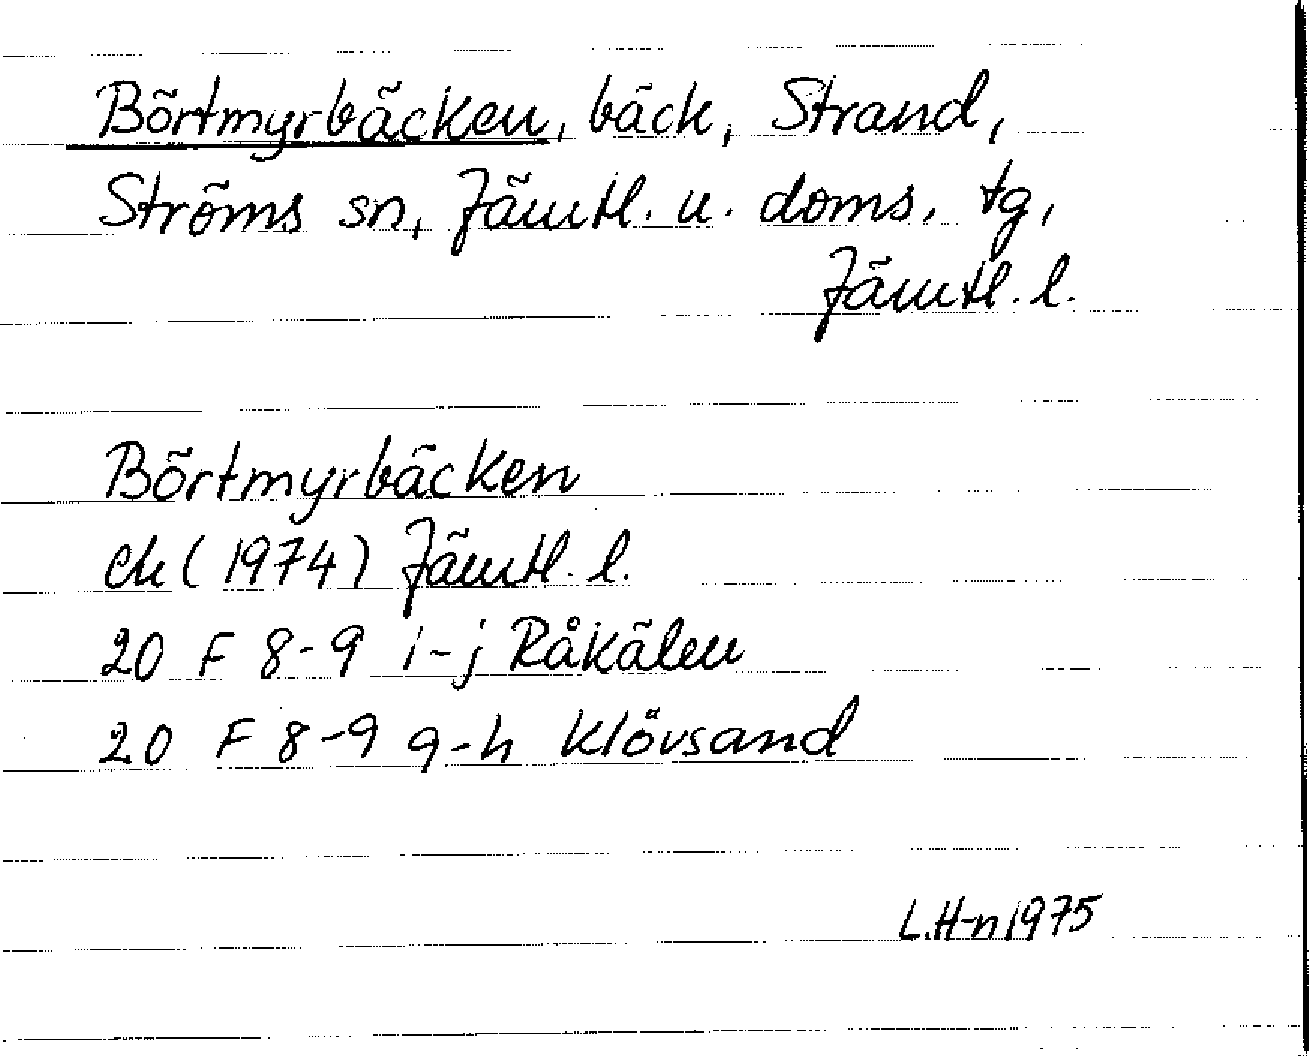 Börtmyrbäcken, bäck, Strand,
Ströms sn, Jämtl. n. doms. tg,
Jämtl. l.
Börtmyrbäcken
ek (1974) Jämtl. l.
20 F 8-9 i-j Råkälen
20 F 8-9 g-h Klövsand
L.H-n 1975